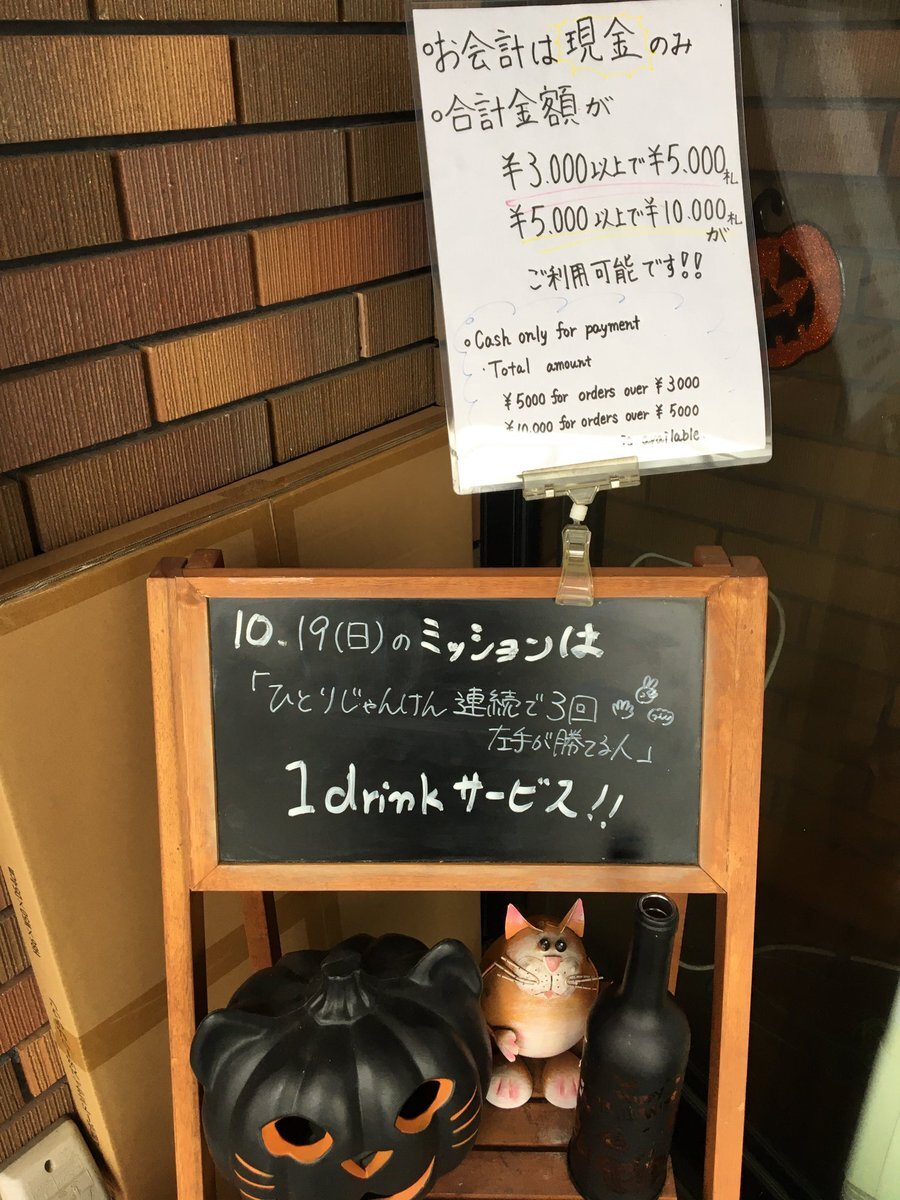 ○お会計は現金のみ
○合計金額が
¥3.000以上で¥5.000札
¥5.000以上で¥10.000札が
ご利用可能です!!
○Cash only for payment
・Total amount
¥5000 for orders over ¥3000
¥10.000 for orders over ¥5000
is available.
10.19(日)のミッションは
「ひとりじゃんけん連続で3回
左手が勝てる人」
1drinkサービス!!